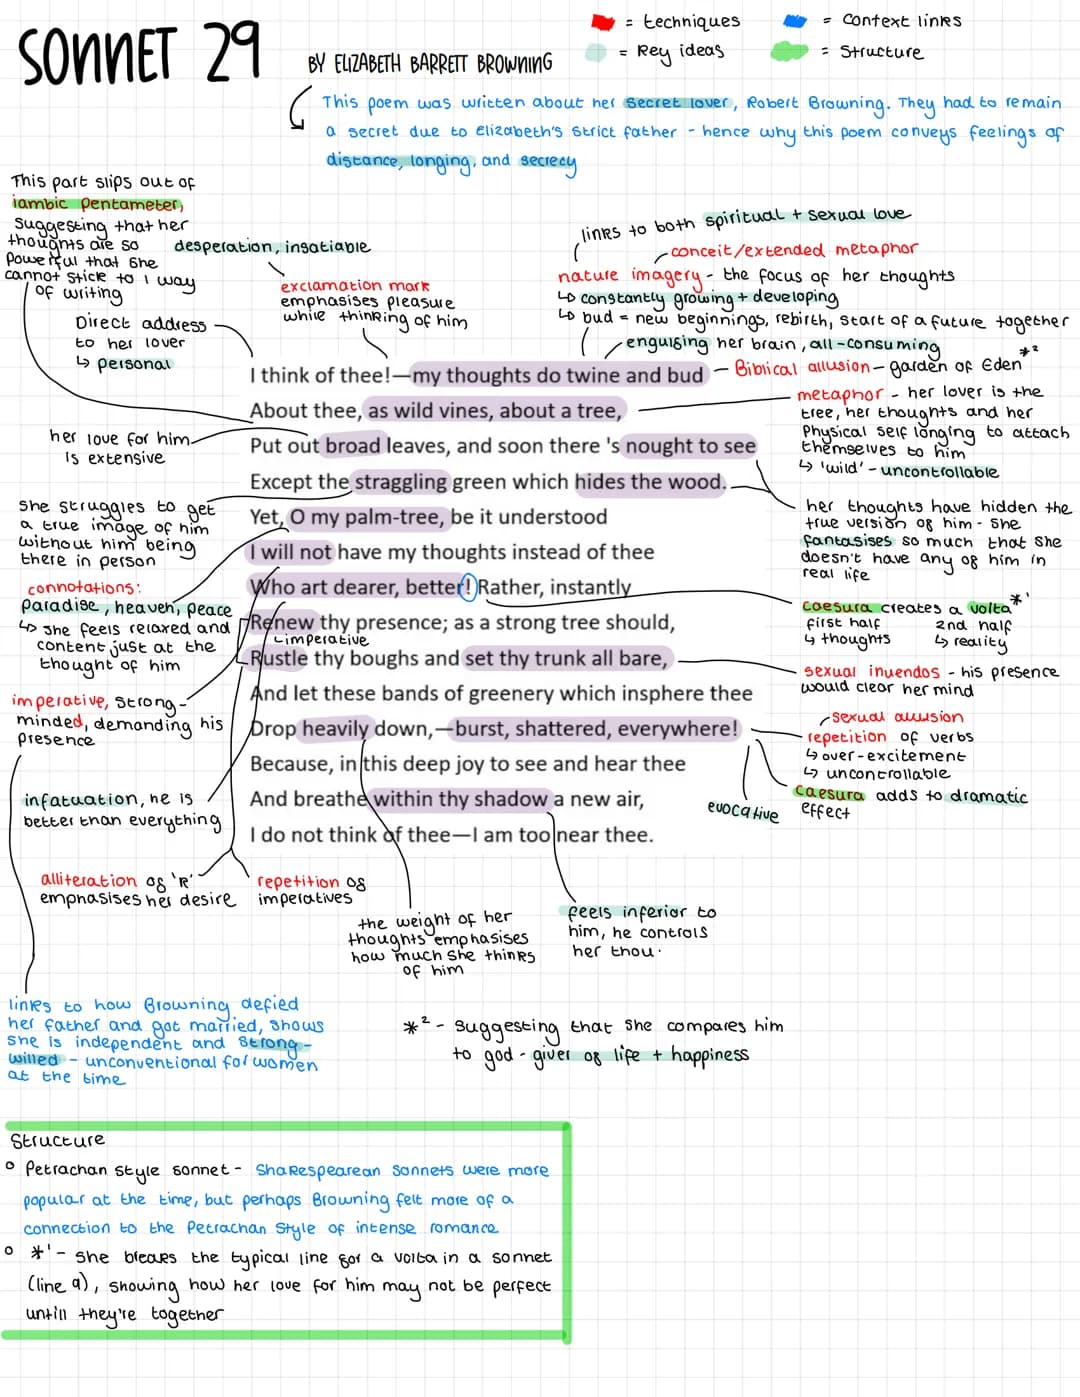 SONNET 29
BY ELIZABETH BARRETT BROWNING
= techniques
= Context links
= Key ideas
= Structure
This poem was written about her secret lover, Robert Browning. They had to remain
a secret due to Elizabeth's strict father - hence why this poem conveys feelings of
distance, longing, and secrecy
This part slips out of
iambic pentameter,
suggesting that her
thoughts are so
powerful that she
cannot stick to 1 way
of writing
desperation, insatiable
exclamation mark
emphasises pleasure
while thinking of him
Direct address
to her lover
↳ personal
links to both spiritual + sexual love
conceit/extended metaphor
nature imagery - the focus of her thoughts
↳ constantly growing + developing
↳ bud = new beginnings, rebirth, start of a future together
engulging her brain, all-consuming
*2
Biblical allusion - garden of Eden
I think of thee!—my thoughts do twine and bud
About thee, as wild vines, about a tree,
Put out broad leaves, and soon there 's nought to see
Except the straggling green which hides the wood.
Yet, O my palm-tree, be it understood
I will not have my thoughts instead of thee
Who art dearer, better! Rather, instantly
Renew thy presence; as a strong tree should,
imperative
Rustle thy boughs and set thy trunk all bare,
And let these bands of greenery which insphere thee
Drop heavily down,—burst, shattered, everywhere!
Because, in this deep joy to see and hear thee
And breathe within thy shadow a new air,
I do not think of thee—I am too near thee.
metaphor - her lover is the
tree, her thoughts and her
physical self longing to attach
themselves to him
↳ 'wild' - uncontrollable
her thoughts have hidden the
true version of him - she
fantasises so much that she
doesn't have any of him in
real life
caesura creates a volta *1
first half
↳ thoughts
2nd half
↳ reality
sexual inuendos - his presence
would clear her mind
sexual allusion
repetition of verbs
↳ over-excitement
↳ uncontrollable
caesura adds to dramatic
effect
evocative
her love for him
is extensive
she struggles to get
a true image of him
without him being
there in person
connotations:
paradise, heaven, peace
↳ she feels relaxed and
content just at the
thought of him
imperative, strong-
minded, demanding his
presence
infatuation, he is
better than everything
alliteration of 'R'
emphasises her desire
repetition of
imperatives
the weight of her
thoughts emphasises
how much she thinks
of him
feels inferior to
him, he controls
her thou
links to how Browning defied
her father and got married, shows
she is independent and strong-
willed - unconventional for women
at the time
*2 - suggesting that she compares him
to god - giver of life + happiness
Structure
o Petrachan style sonnet - Shakespearean sonnets were more
popular at the time, but perhaps Browning felt more of a
connection to the Petrachan style of intense romance
o *1 - she breaks the typical line for a volta in a sonnet
(line 9), showing how her love for him may not be perfect
untill they're together